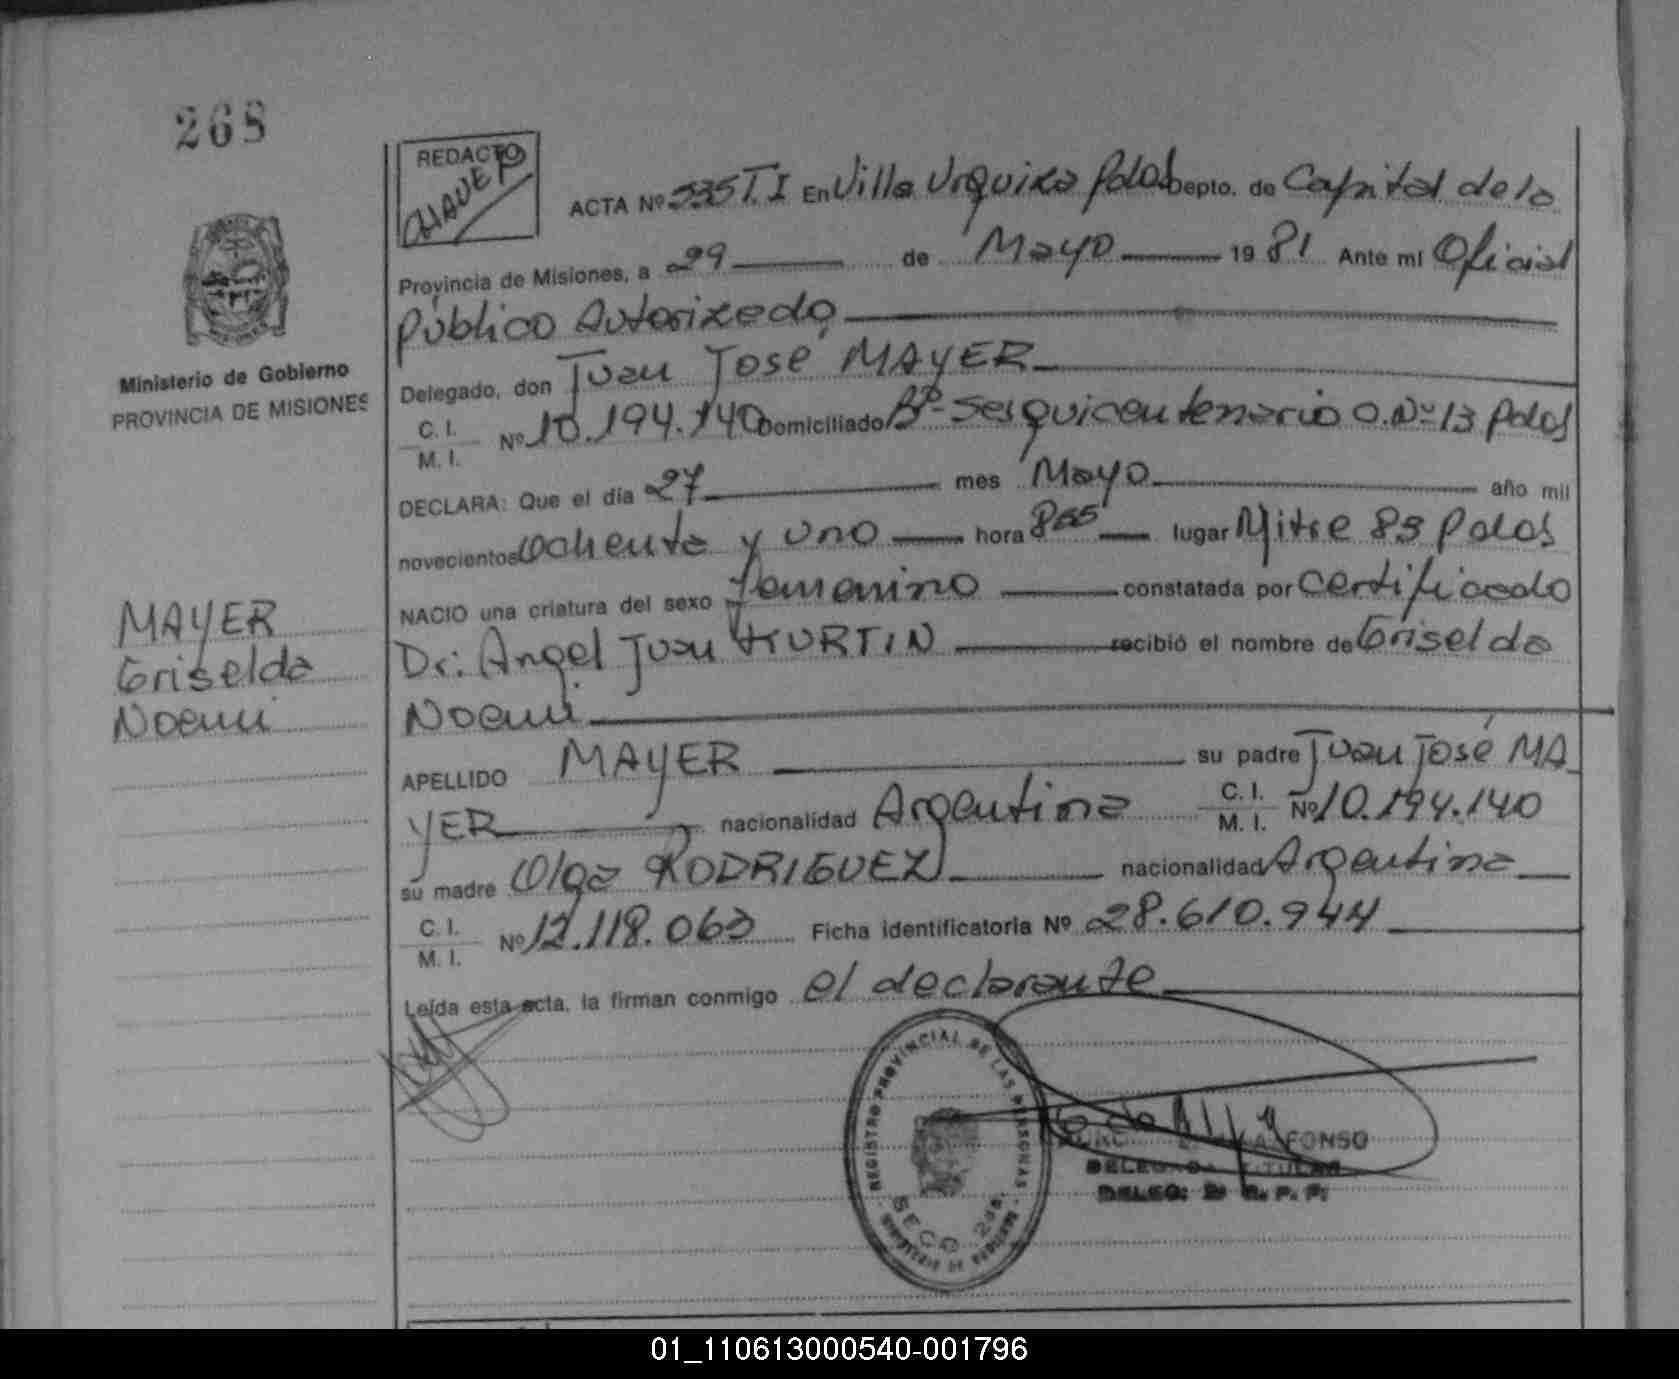 268
REDACTO
CHAVEZ
ACTA Nº 535 T.I En Villa Urquiza Pdas Depto. de Capital de la
Provincia de Misiones, a 29 de Mayo 1981 Ante mí Oficial
Público Autorizado
Ministerio de Gobierno
PROVINCIA DE MISIONES
Delegado, don Juan José MAYER
C. I. M. I. Nº 10.194.140 Domiciliado Bº- Sesquicentenario C.Nº 13 Pdas
DECLARA: Que el día 27 mes Mayo año mil
novecientos ochenta y uno hora 8 lugar Mitre 83 Pdas
NACIO una criatura del sexo femenino constatada por Certificado
MAYER
Griselda
Noemi
Dr. Angel Juan KURTIN recibió el nombre de Griselda
Noemi
APELLIDO MAYER su padre Juan José MA
YER nacionalidad Argentina C. I. M. I. Nº 10.194.140
su madre Olga RODRIGUEZ nacionalidad Argentina
C. I. M. I. Nº 12.118.063 Ficha identificatoria Nº 28.610.944
Leída esta acta, la firman conmigo el declarante
REGISTRO PROVINCIAL DE LAS PERSONAS
SECC.
MINISTERIO DE GOBIERNO
ALFONSO
DELEGADA TITULAR
DELEG: R. P. P.
01_110613000540-001796